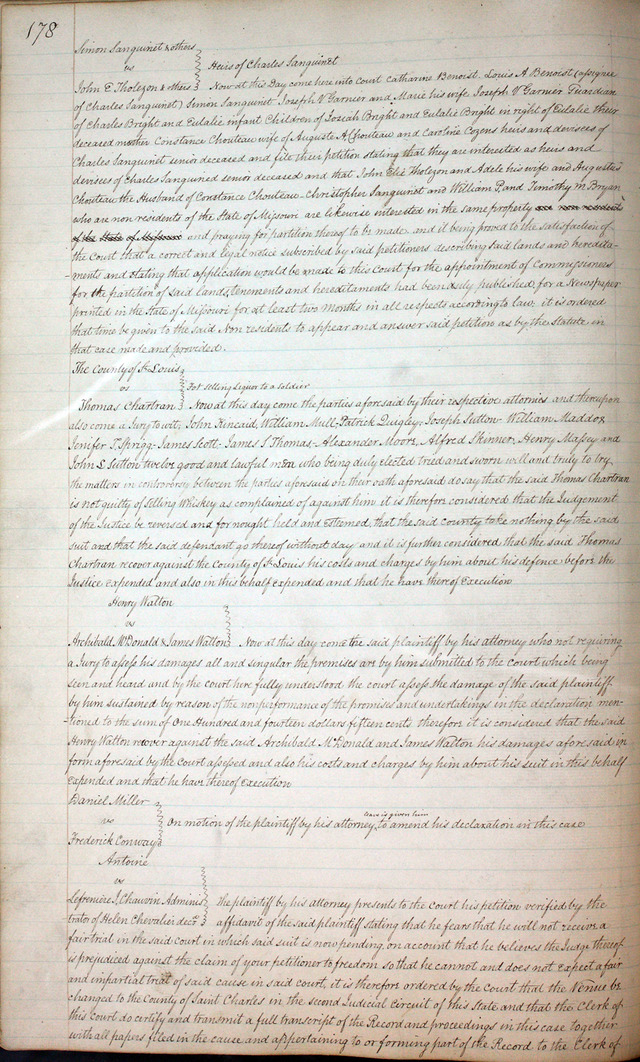 178
Simon Sanguinet & others
vs
Heirs of Charles Sanguinet
John E. Tholozon & others Now at this Day come here into Court Catharine Benoist. Louis A Benoist (assignee
of Charles Sanguinet) Simon Sanguinet Joseph V Garnier and Marie his wife Joseph V Garnier Guardian
of Charles Bright and Eulalie infant Children of Josiah Bright and Eulalie Bright in right of Eulalie their
deceased mother Constance Chouteau wife of Auguste A Chouteau and Caroline Cozens heirs and devisees of
Charles Sanguinet senior deceased and file their petition stating that they are interested as heirs and
devisees of Charles Sanguined senior deceased and that John Elie Tholozon and Adele his wife and Augustus
Chouteau the Husband of Constance Chouteau - Christopher Sanguinet and William P. and Timothy M. Bryan
who are non residents of the State of Missouri are likewise interested in the same property are non residents
of the State of Missouri and praying for partition thereof to be made. and it being proved to the satisfaction of
the Court that a correct and legal notice subscribed by said petitioners describing said lands and heredita-
ments and stating that application would be made to this Court for the appointment of Commissioners
for the partition of said lands, tenements and hereditaments had been duly published, for a Newspaper
printed in the State of Missouri for at least two Months in all respects according to law, it is ordered
that time be given to the said Non residents to appear and answer said petition as by the Statute in
that case made and provided.
The County of St Louis
vs
For selling Liquor to a soldier
Thomas Chartran Now at this day come the parties aforesaid by their respective attornies and thereupon
also come a Jury to wit; John Kincaid, William Mull, Patrick Quigley, Joseph Sutton - William Maddox
Jenifer T. Sprigg - James Scott - James S Thomas - Alexander Moore, Alfred Skinner, Henry Massey and
John L Sutton twelve good and lawful men who being duly elected tried and sworn well and truly to try
the matters in controversy between the parties aforesaid on their oath aforesaid do say that the said Thomas Chartran
is not guilty of selling Whiskey as complained of against him it is therefore considered that the Judgement
of the Justice be reversed and for nought held and esteemed, that the said County take nothing by the said
suit and that the said defendant go thereof without day and it is further considered that the said Thomas
Chartran recover against the County of St Louis his costs and charges by him about his defence before the
Justice expended and also in this behalf expended and that he have thereof execution
Henry Walton
vs
Archibald McDonald & James Walton Now at this day come the said plaintiff by his attorney who not requiring
a Jury to assess his damages all and singular the premises are by him submitted to the Court which being
seen and heard and by the court here fully understood the court assess the damage of the said plaintiff
by him sustained by reason of the nonperformance of the promises and undertakings in the declaration men-
tioned to the sum of One Hundred and fourteen dollars fifteen cents therefore it is considered that the said
Henry Walton recover against the said Archibald McDonald and James Walton his damages aforesaid in
form aforesaid by the court assessed and also his costs and charges by him about his suit in this behalf
expended and that he have thereof execution
Daniel Miller
vs
leave is given him
On motion of the plaintiff by his attorney to amend his declaration in this case
Frederick Conway
Antoine
vs
Lefreniere J. Chauvin Adminis The plaintiff by his attorney presents to the Court his petition verified by the
trator of Helen Chevalier decd. affidavit of the said plaintiff stating that he fears that he will not receive a
fair trial in the said court in which said suit is now pending, on account that he believes the Judge thereof
is prejudiced against the claim of your petitioner to freedom so that he cannot and does not expect a fair
and impartial trial of said cause in said court, it is therefore ordered by the court that the Venue be
changed to the County of Saint Charles in the second Judicial circuit of this State and that the Clerk of
this court do certify and transmit a full transcript of the Record and proceedings in this case together
with all papers filed in the cause and appertaining to or forming part of the Record to the Clerk of